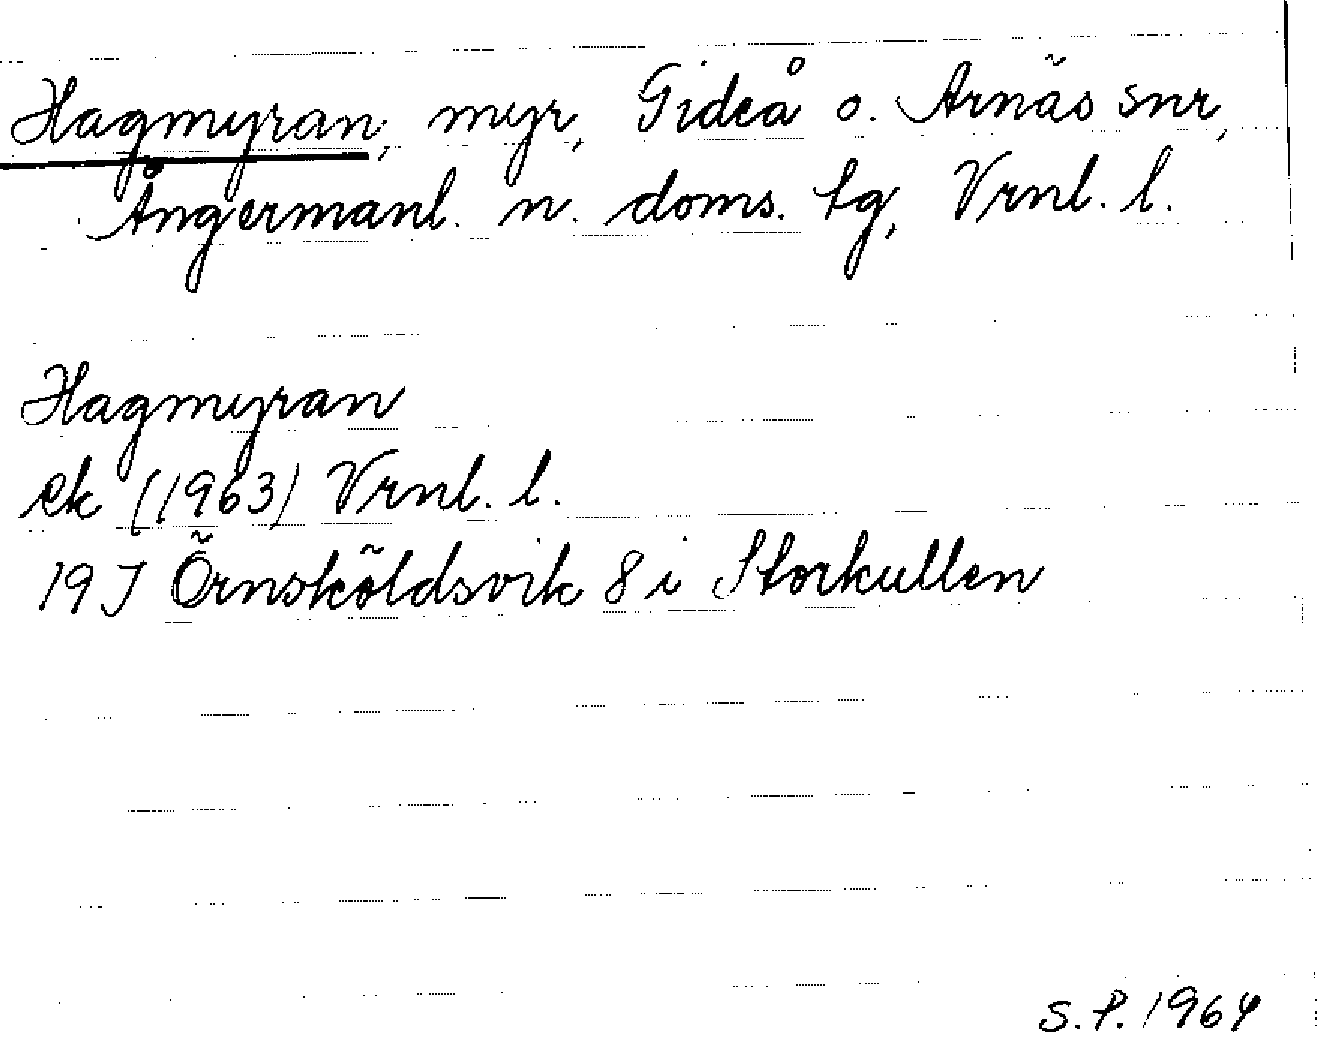 Hagmyran, myr, Gideå o. Arnäs snr,
Ångermanl. n. doms. tg, Vrnl. l.
Hagmyran
ek (1963) Vrnl. l.
19 J Örnsköldsvik 8 i Storkullen
S.P. 1964